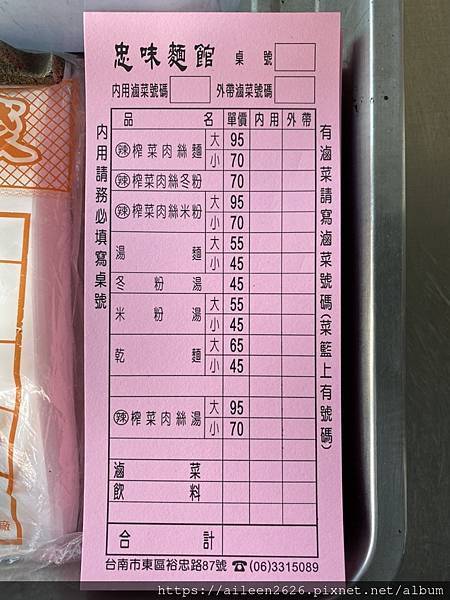 忠味麵館 桌號
內用滷菜號碼 外帶滷菜號碼
品名 單價 內用 外帶
辣榨菜肉絲麵 大 95
小 70
辣榨菜肉絲冬粉 70
辣榨菜肉絲米粉 大 95
小 70
湯麵 大 55
小 45
冬粉湯 45
米粉湯 大 55
小 45
乾麵 大 65
小 45
辣榨菜肉絲湯 大 95
小 70
滷菜
飲料
合計
台南市東區裕忠路87號 ☎(06)3315089
內用請務必填寫桌號
有滷菜請寫滷菜號碼(菜籃上有號碼)
廠
https://aileen2626.pixnet.net/album